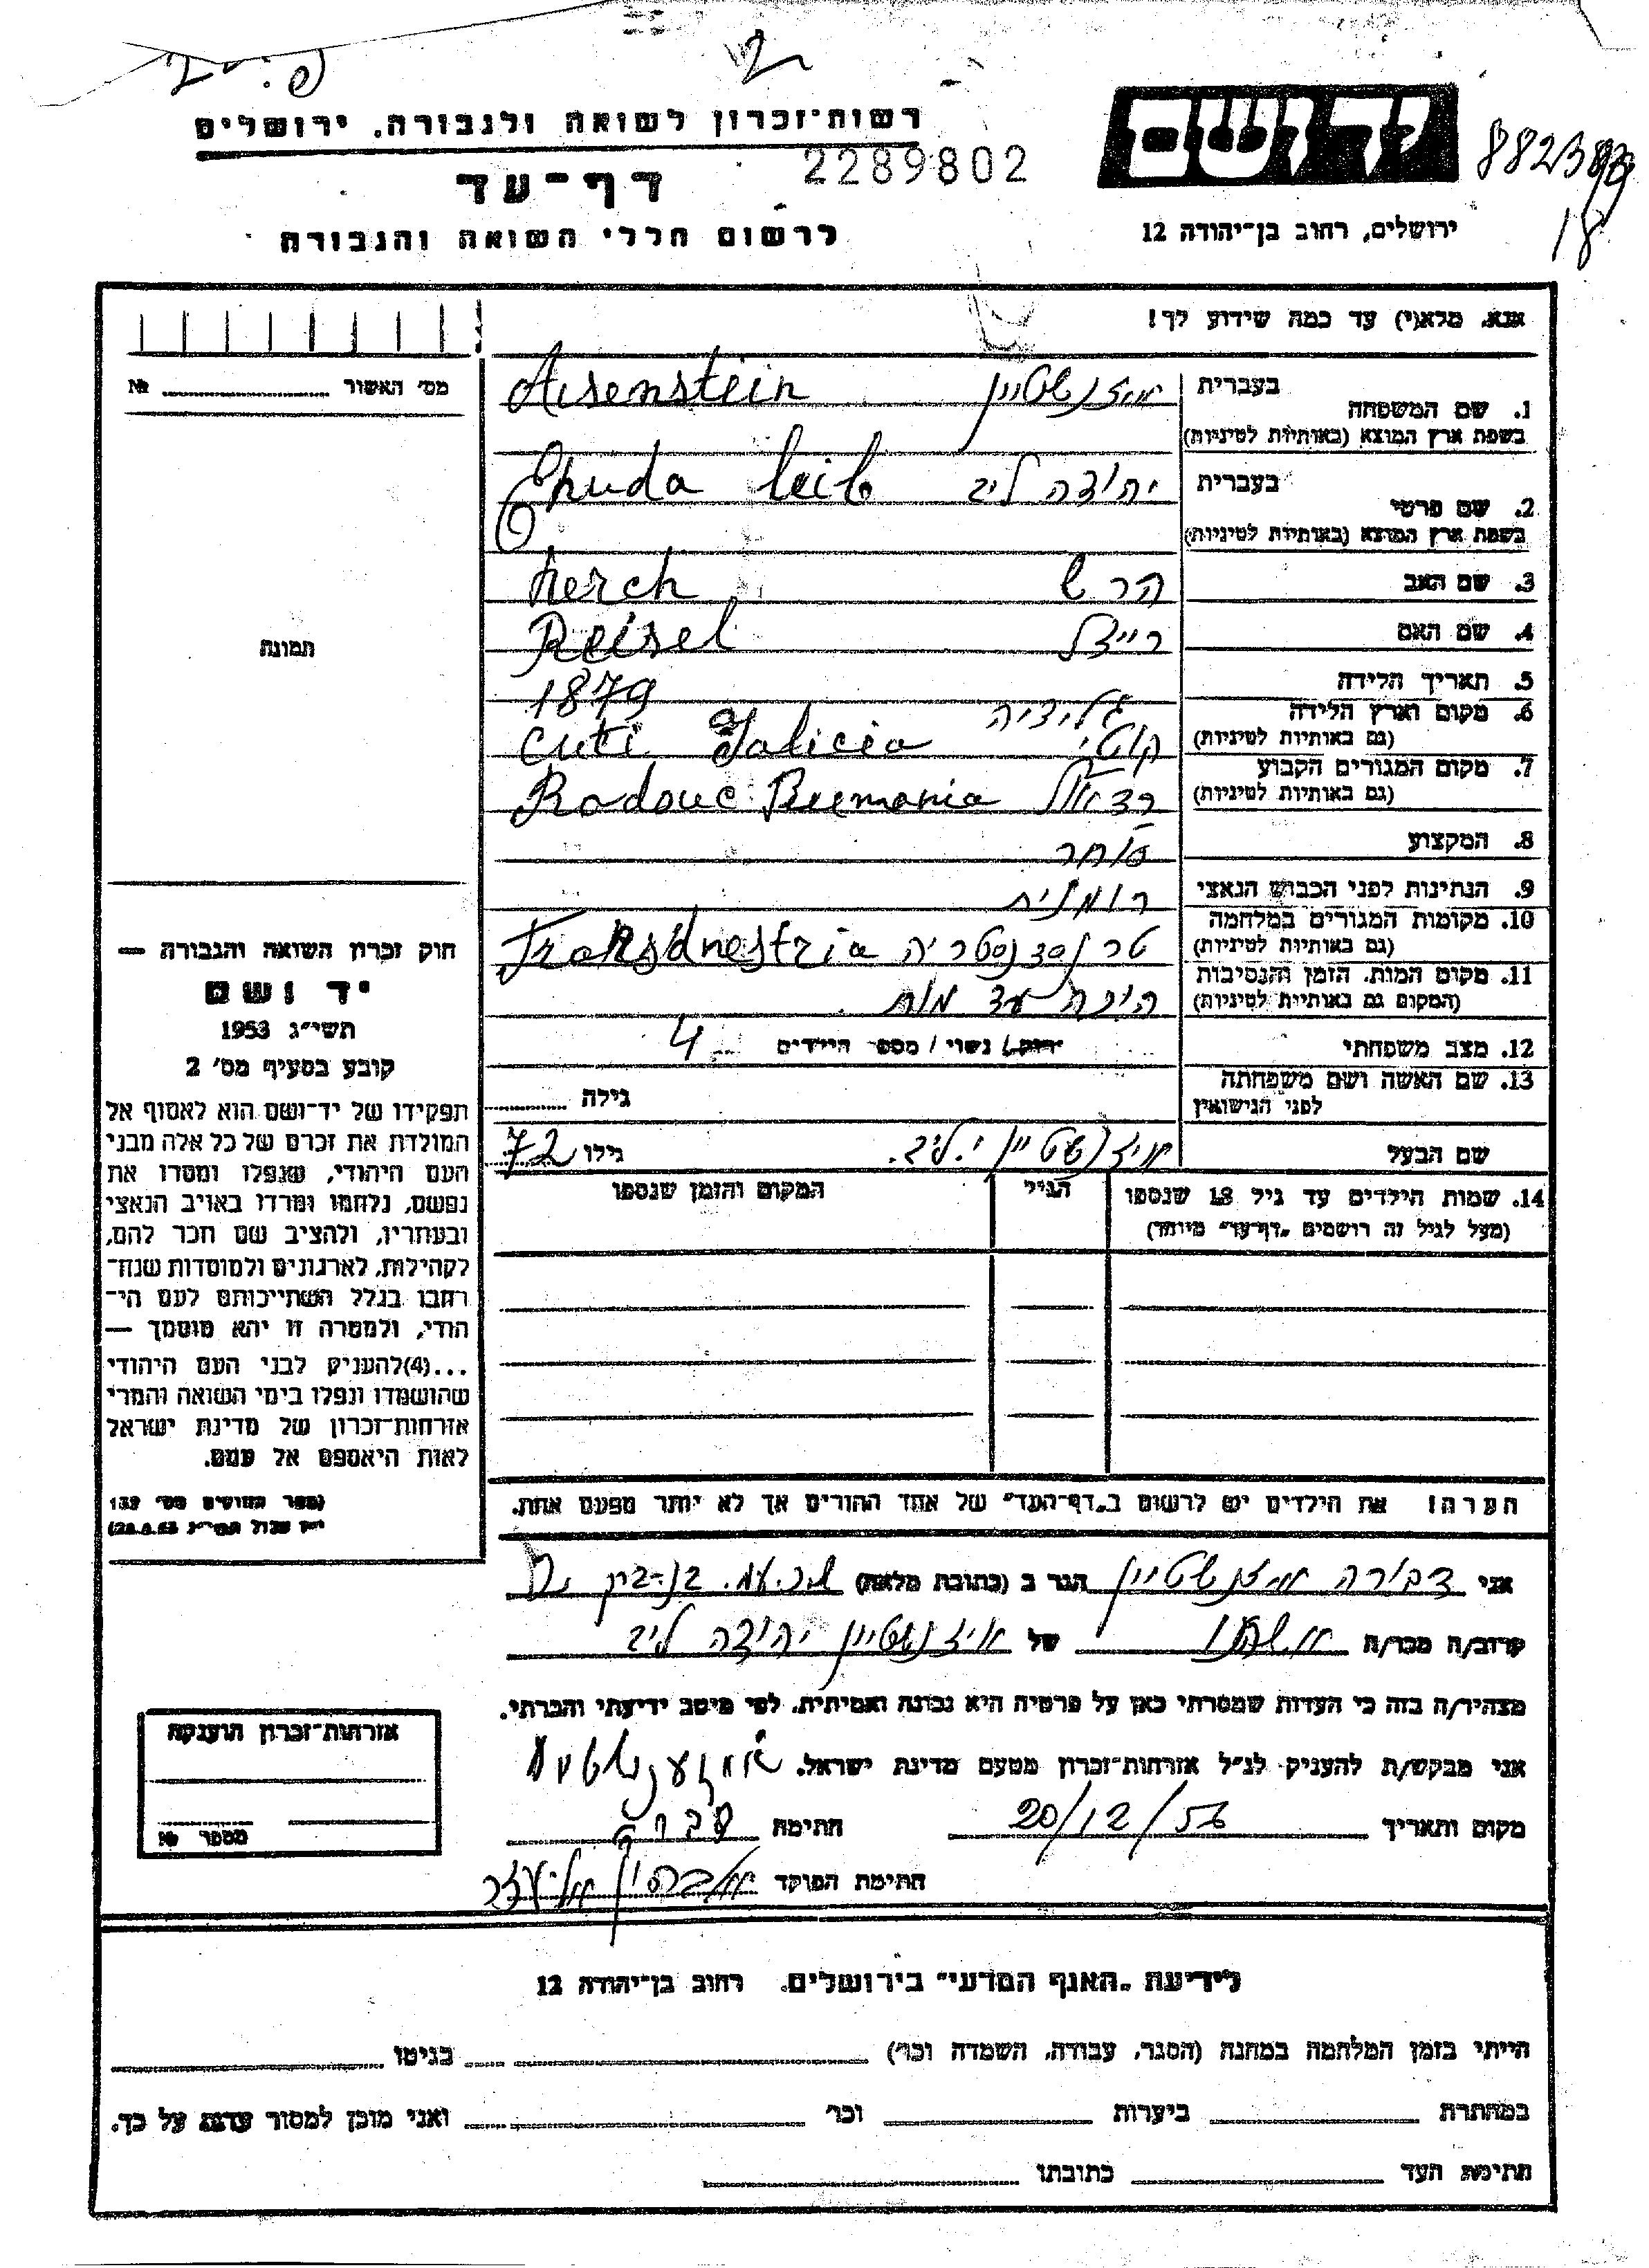 2
רשות־זכרון לשואה ולגבורה. ירושלים
יד ושם
2289802
דף־עד
ירושלים, רחוב בן־יהודה 12
18
לרשום חללי השואה והגבורה
אנא, מלא(י) עד כמה שידוע לך!
מס׳ האשור № 
1. שם המשפחה בעברית איזנשטיין Aisenstein
בשפת ארץ המוצא (באותיות לטיניות)
2. שם פרטי בעברית יהודה ליב Ehuda leib
בשפת ארץ המוצא (באותיות לטיניות)
3. שם האב הרש herch
4. שם האם רייזל Reisel
תמונה
5. תאריך הלידה 1879
6. מקום וארץ הלידה גליציה
(גם באותיות לטיניות) קוטי Cuti Galicia
7. מקום המגורים הקבוע
(גם באותיות לטיניות) Radouc Rumania
8. המקצוע סוחר
9. הנתינות לפני הכבוש הנאצי רומנית
10. מקומות המגורים במלחמה
(גם באותיות לטיניות) טרנסדנסטריה Transdnestria
11. מקום המות, הזמן והנסיבות
(המקום גם באותיות לטיניות) הוכה עד מות.
12. מצב משפחתי רווק/ נשוי / מספר הילדים 4
13. שם האשה ושם משפחתה
לפני הנישואין גילה
שם הבעל איזנשטיין י. ליב. גילו 72
14. שמות הילדים עד גיל 18 שנספו הגיל המקום והזמן שנספו
(מעל לגיל זה רושמים „דף־עד״ מיוחד)
חוק זכרון השואה והגבורה —
יד ושם
תשי״ג 1953
קובע בסעיף מס׳ 2
תפקידו של יד־ושם הוא לאסוף אל
המולדת את זכרם של כל אלה מבני
העם היהודי, שנפלו ומסרו את
נפשם, נלחמו ומרדו באויב הנאצי
ובעוזריו, ולהציב שם וזכר להם,
לקהילות, לארגונים ולמוסדות שנח־
רחבו בגלל השתייכותם לעם הי־
הודי, ולמטרה זו יהא מוסמך —
...(4)להעניק לבני העם היהודי
שהושמדו ונפלו בימי השואה והמרי
אזרחות־זכרון של מדינת ישראל
לאות היאספם אל עמם.
(ספר החוקים מס׳ 132
הערה! את הילדים יש לרשום ב„דף־העד״ של אחד ההורים אך לא יותר מפעם אחת.
אני דבורה איזנשטיין הגר ב (כתובת מלאה)
קרוב/ה מכר/ה אשתו של איזנשטיין יהודה ליב
מצהיר/ה בזה כי העדות שמסרתי כאן על פרטיה היא נכונה ואמיתית, לפי מיטב ידיעתי והכרתי.
אני מבקש/ת להעניק לנ״ל אזרחות־זכרון מטעם מדינת ישראל.
מקום ותאריך 20/12/56 חתימה
חתימת הפוקד
אזרחות־זכרון הוענקה
מספר №
לידיעת „האגף המדעי״ בירושלים. רחוב בן־יהודה 12
הייתי בזמן המלחמה במחנה (הסגר, עבודה, השמדה וכו׳) בגיטו
במחתרת ביערות וכו׳ ואני מוכן למסור עדות על כך.
חתימת העד כתובתו